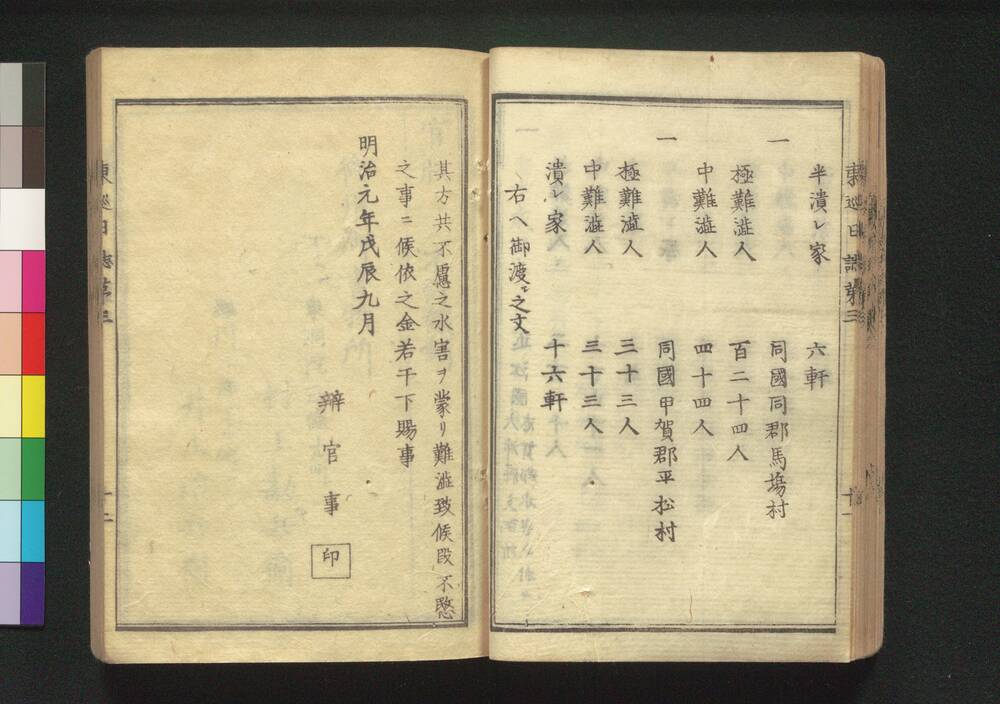 東巡日誌第三
十一
半潰レ家 六軒
一 同國同郡馬塲村
極難澁人 百二十四人
中難澁人 四十四人
一 同國甲賀郡平松村
極難澁人 三十三人
中難澁人 三十三人
潰レ家 十六軒
右ヘ御渡シ之文
其方共不慮之水害ヲ蒙リ難澁致候段不愍
之事ニ候依之金若干下賜事
明治元年戊辰九月
辨官事 印
東巡日誌第三
十二